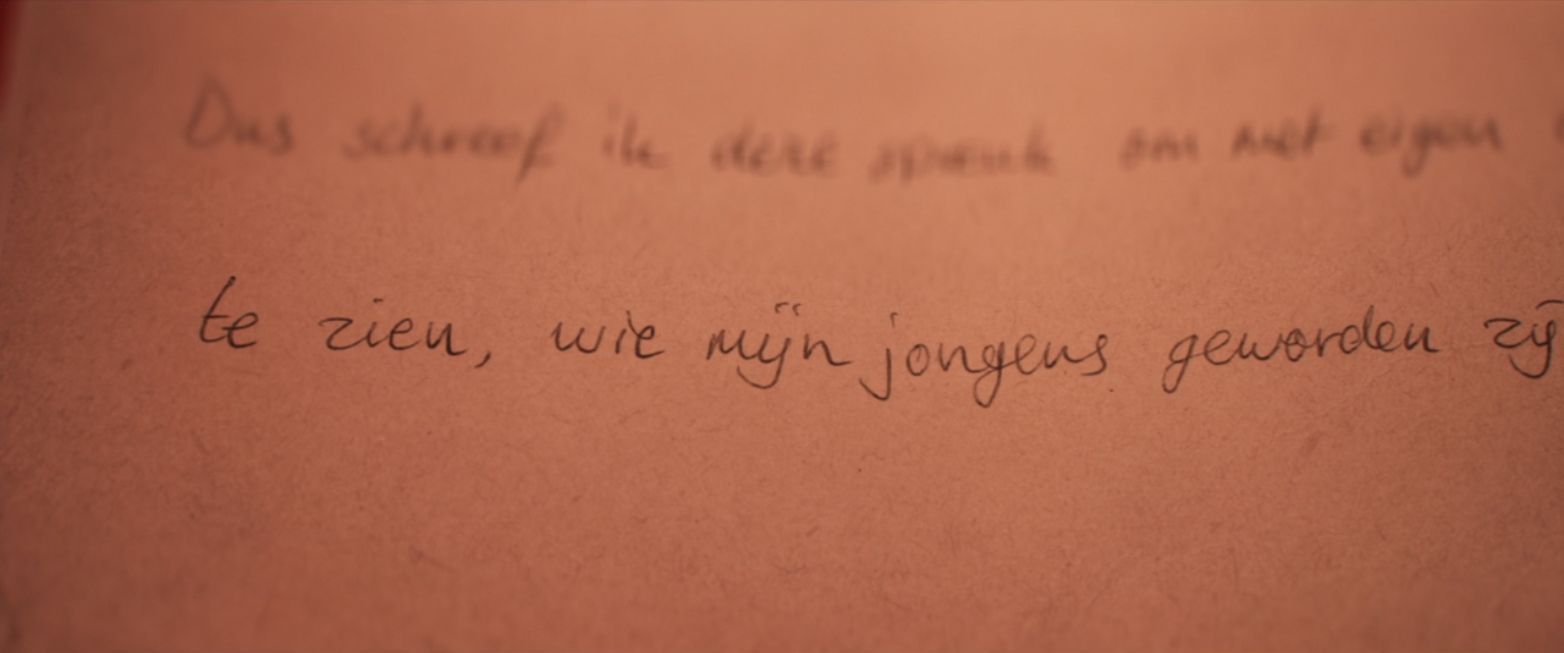 Dus schreef ik deze spreuk om met eigen
te zien, wie mijn jongens geworden zij